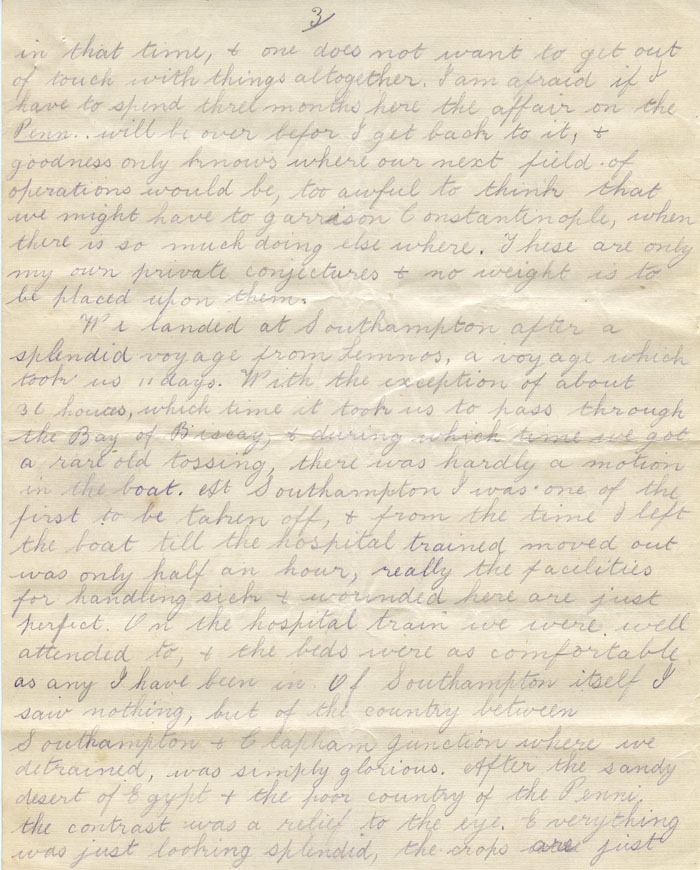 3/
in that time, & one does not want to get out
of touch with things altogether. I am afraid if I
have to spend three months here the affair on the
Penn.. will be over befor I get back to it, &
goodness only knows where our next field of
operations would be, too awful to think that
we might have to garrison Constantinople, when
there is so much doing else where. These are only
my own private conjectures & no weight is to
be placed upon them.
We landed at Southampton after a
splendid voyage from Lemnos, a voyage which
took us 11 days. With the exception of about
36 houres, which time it took us to pass through
the Bay of Biscay, & during which time we got
a rare old tossing, there was hardly a motion
in the boat. At Southampton I was one of the
first to be taken off, & from the time I left
the boat till the hospital trained moved out
was only half an hour, really the facilities
for handling sick & wounded here are just
perfect. On the hospital train we were well
attended to, & the beds were as comfortable
as any I have been in. Of Southampton itself I
saw nothing, but of the country between
Southampton & Clapham Junction where we
detrained, was simply glorious. After the sandy
desert of Egypt & the poor country of the Penni,
the contrast was a relief to the eye. Everything
was just looking splendid, the crops are just